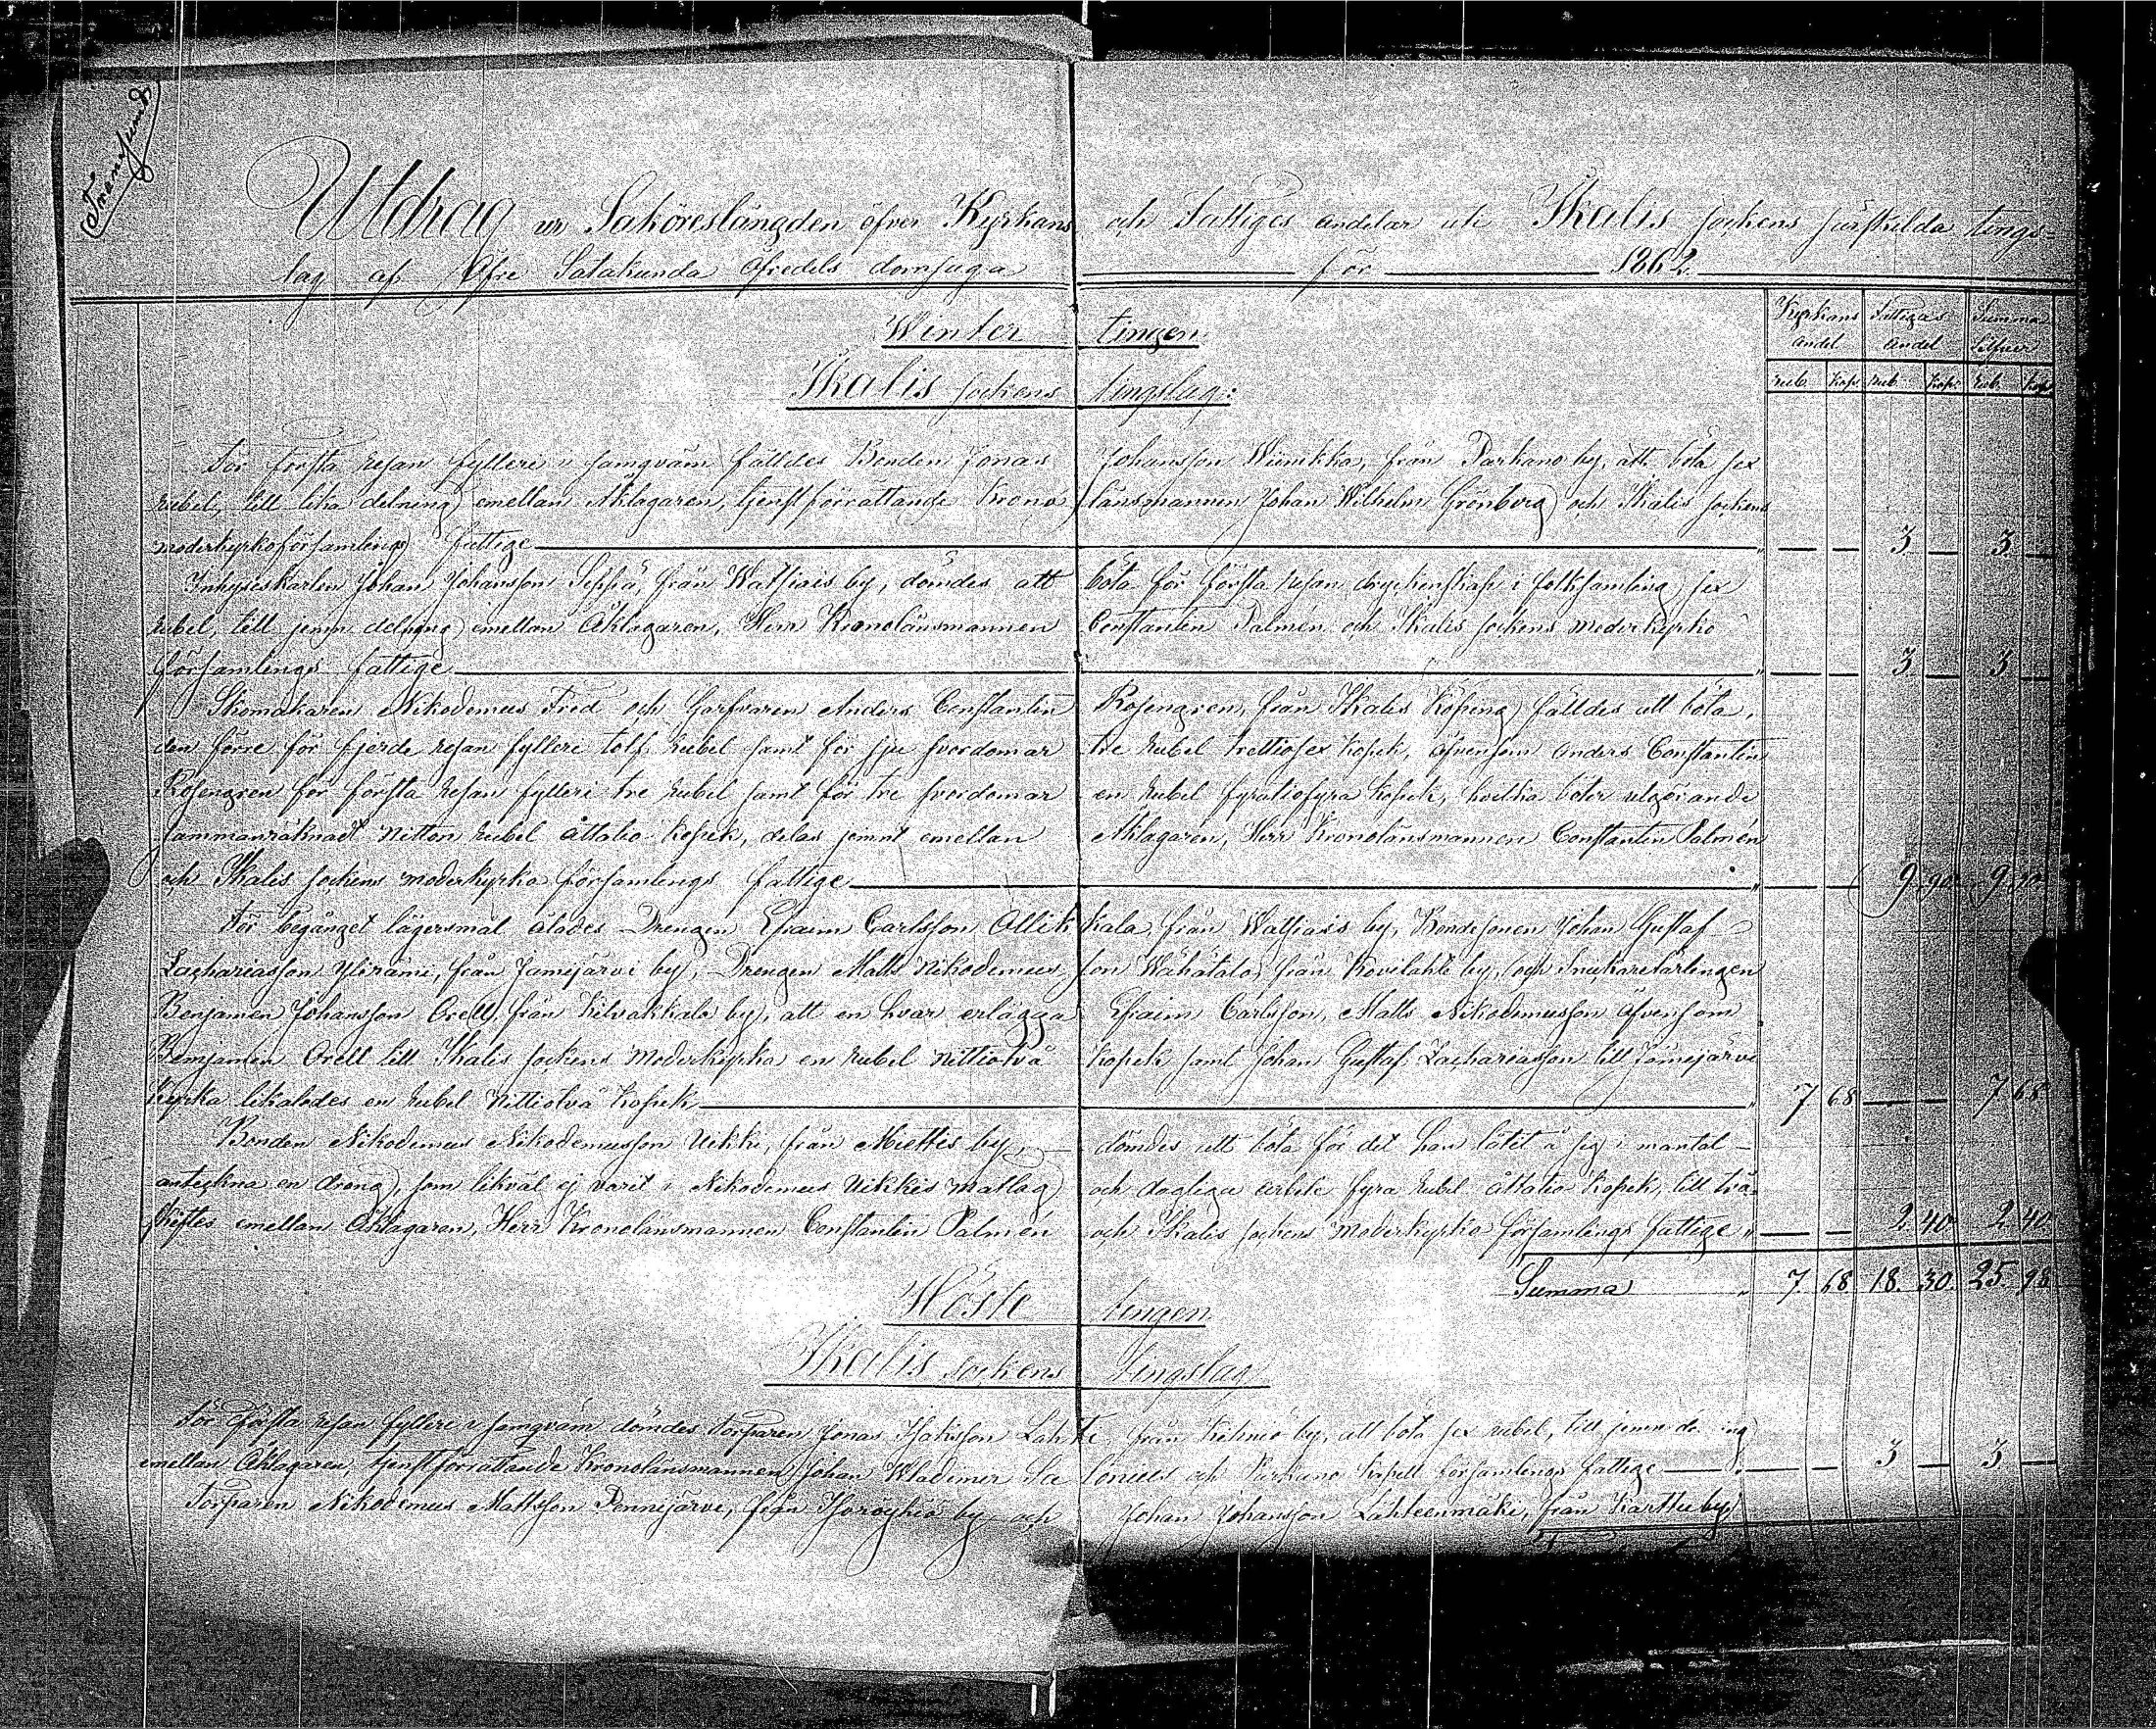 Utdrag ur Saköreslängden öfver Kyrkans och Fattiges andelar uti Ikalis sockens särskilda tings-
lag af Öfre Satakunda Öfredels domsaga för 1862.
Kyrkans andel Fattigas andel Summa Silfver
rub. kop. rub. kop. rub. kop.
Winter tingen
Ikalis sockens tingslag:
För första resan fylleri i samqväm fälldes Bonden Jonas Johansson Wiinikka, från Parkano by, att böta sex
rubel, till lika delning emellan Åklagaren, tjenstförrättande Krono länsmannen Johan Wilhelm Grönberg och Ikalis sockens
moderkyrkoförsamlings fattige " — — 3 — 3 —
Inhyseskarlen Johan Johansson Seppä, från Watsiais by, dömdes att böta för första resan dryckenskap i folksamling sex
rubel, till jemn delning emellan Åklagaren, Herr Kronolänsmannen Constantin Palmén och Ikalis sockens moderkyrko
församlings fattige " — — 3 — 3 —
Skomakaren Nikodemus Fred och Garfvaren Anders Constantin Rosengren, från Ikalis Köping fälldes att böta,
den förre för fjerde resan fylleri tolf rubel samt för sju svordomar tre rubel trettiosex kopek, äfvensom Anders Constantin
Rosengren för första resan fylleri tre rubel samt för tre svordomar en rubel fyratiofyra kopek, hvilka böter utgörande
sammanräknadt nitton rubel åttatio kopek, delas jemnt emellan Åklagaren, Herr Kronolänsmannen Constantin Palmén
och Ikalis sockens moderkyrko församlings fattige " — — 9 90 9 90
För begånget lägersmål ålades Drengen Efraim Carlsson Ollik kala, från Watsiais by, Bondesonen Johan Gustaf
Zachariasson Ylirämi, från Jämijärvi by, Drengen Matts Nikodemus son Wähätalo, från Kovilahti by, och Snickarelärlingen
Benjamin Johansson Orell, från Kilvakkala by, att en hvar erlägga Efraim Carlsson, Matts Nikodemusson äfvensom
Benjamin Orell till Ikalis sockens Moderkyrka en rubel nittiotvå kopek samt Johan Gustaf Zachariasson till Jämijärvi
Kyrka likaledes en rubel nittiotvå kopek " 7 68 — — 7 68
Bonden Nikodemus Nikodemusson Uikki, från Miettis by, dömdes att böta för det han låtit å sig i mantal-
anteckna en dreng, som likväl ej varit i Nikodemus Uikkis matlag och dagliga arbete fyra rubel åttatio kopek, till två-
skiftes emellan Åklagaren, Herr Kronolänsmannen Constantin Palmén och Ikalis sockens Moderkyrko församlings fattige " — — 2 40 2 40
Summa " 7. 68 18. 30. 25 98
Höste tingen
Ikalis sockens tingslag
För första resan fylleri i samqväm dömdes Torparen Jonas Isaksson Lahti från Kihniö by, att böta sex rubel, till jemn de ing
emellan Åklagaren, tjenstförrättande Kronolänsmannen Johan Wladimir Sa lonius och Parkano Kapell församlings fattige " — — 3 — 3 —
Torparen Nikodemus Mattsson Pennijärvi, från by och Johan Johansson Lähteenmäki, från Karttu by,